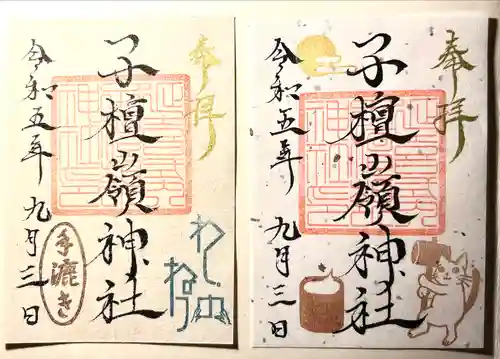 奉拝
子檀嶺神社
令和五年九月三日
手漉き
わしのねり
奉拝
子檀嶺神社
令和五年九月三日